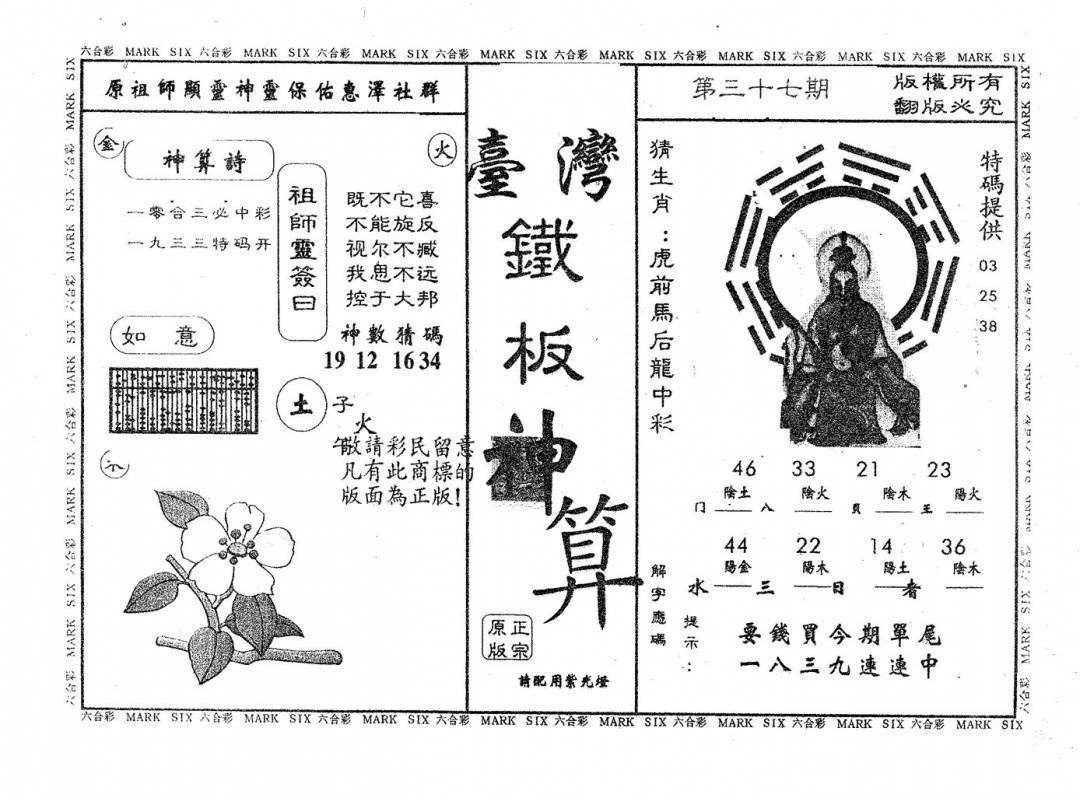 六合彩 MARK SIX 六合彩 MARK SIX 六合彩 MARK SIX 六合彩 MARK SIX 六合彩 MARK SIX 六合彩 MARK SIX 六合彩 MARK SIX 六合彩 MARK SIX
原祖師顯靈神靈保佑惠澤社群
金
火
神算詩
一零合三必中彩
一九三三特码开
祖師靈簽曰
既不它喜
不能旋反
视尔不臧
我思不远
控于大邦
神數猜碼
19 12 16 34
如意
土
子
火
敬請彩民留意
凡有此商標的
版面為正版!
臺灣
鐵
板
神
算
正宗
原版
請配用紫光燈
第三十七期
版權所有
翻版必究
猜生肖:虎前馬后龍中彩
特碼提供
03
25
38
46 33 21 23
陰土 陰火 陰木 陽火
门 八 貝 王
44 22 14 36
陽金 陽木 陽土 陰木
水 三 日 者
解字應碼
提示:
要錢買今期單尾
一八三九連連中
六合彩 MARK SIX 六合彩 MARK SIX 六合彩 MARK SIX 六合彩 MARK SIX 六合彩 MARK SIX 六合彩 MARK SIX 六合彩 MARK SIX 六合彩 MARK SIX